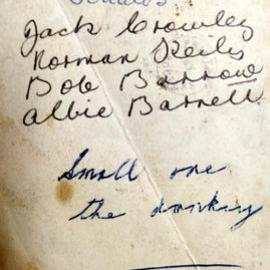 Jack Crowley
Norman Keily
Bob Barrow
Albie Barnell
Small one
the donkey